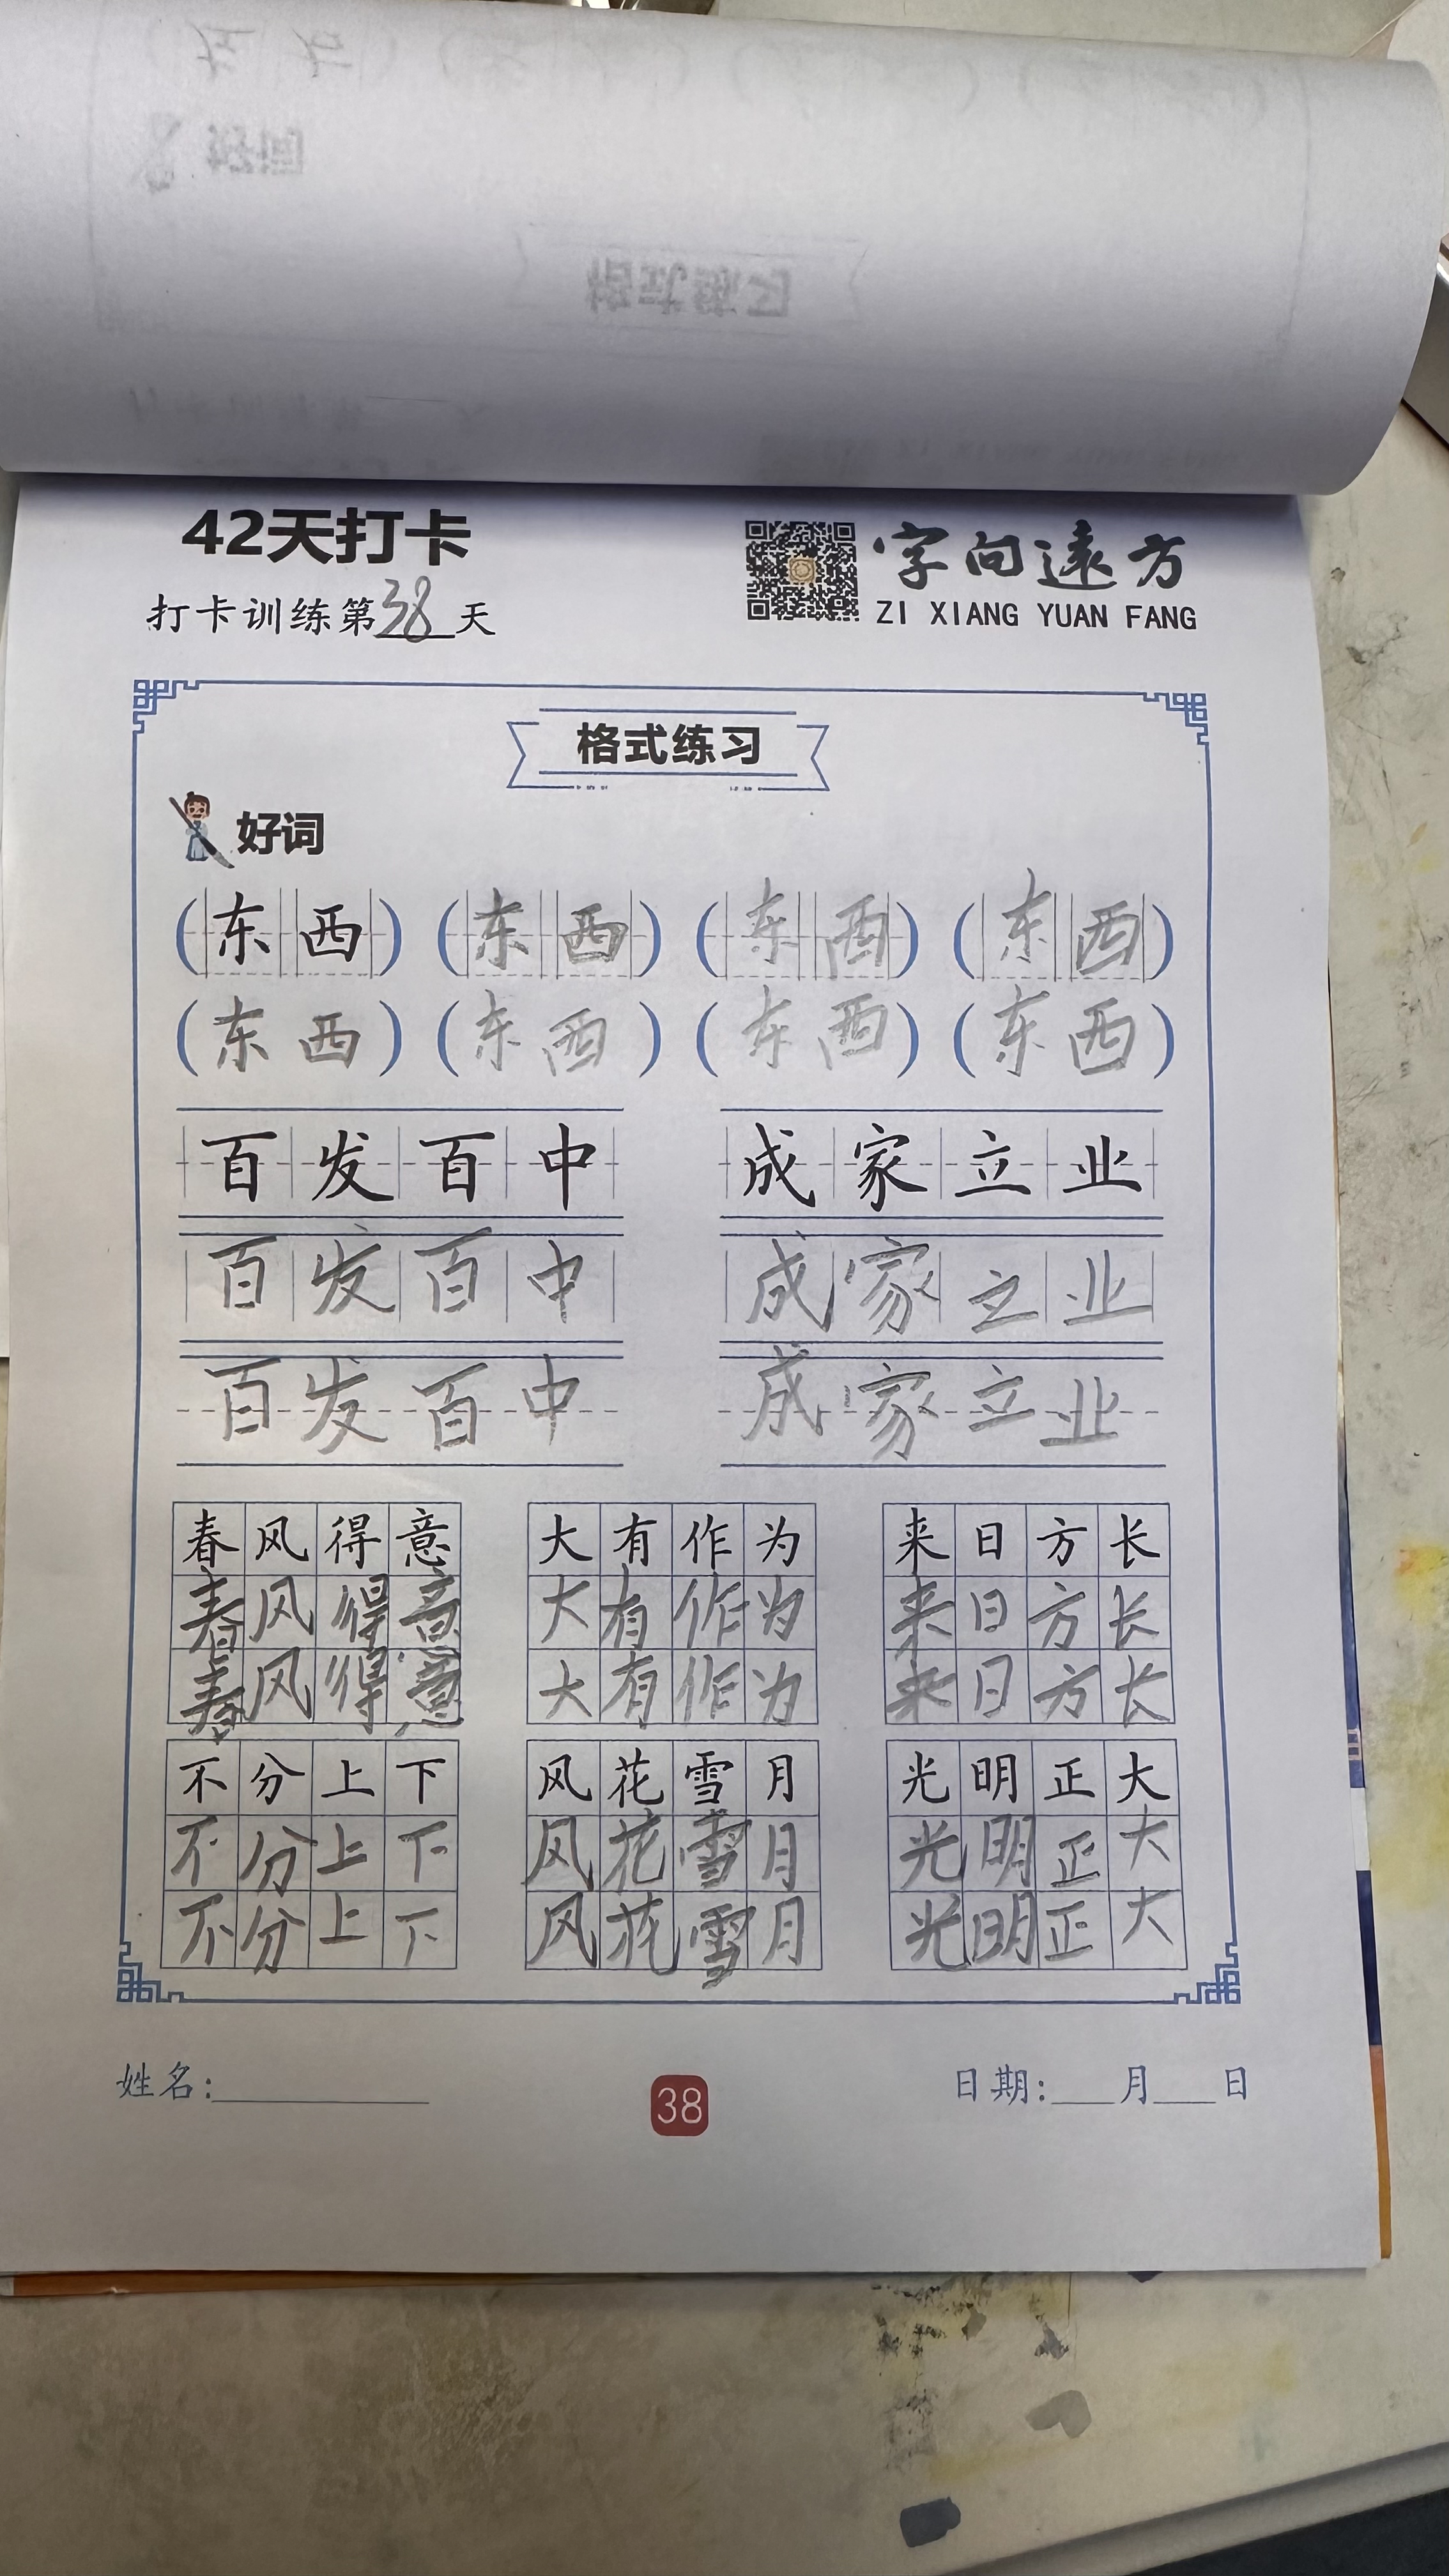 42天打卡
字向遠方
打卡训练第38天
ZI XIANG YUAN FANG
格式练习
好词
(东西) (东西) (东西) (东西)
(东西) (东西) (东西) (东西)
百发百中 成家立业
百发百中 成家立业
百发百中 成家立业
春风得意 大有作为 来日方长
春风得意 大有作为 来日方长
春风得意 大有作为 来日方长
不分上下 风花雪月 光明正大
不分上下 风花雪月 光明正大
不分上下 风花雪月 光明正大
姓名: 38 日期: 月 日